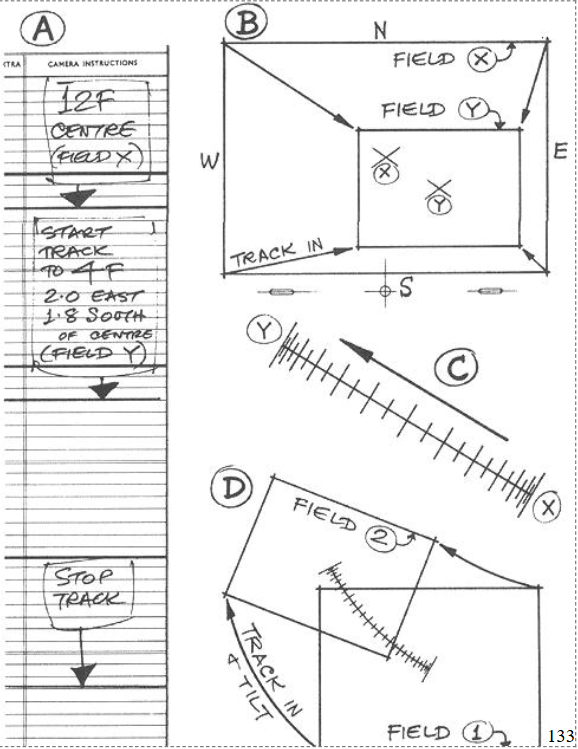 A
TRA
CAMERA INSTRUCTIONS
12F
CENTRE
(FIELD X)
START
TRACK
TO 4F
2.0 EAST
1.8 SOUTH
OF CENTRE
(FIELD Y)
STOP
TRACK
B
N
FIELD X
FIELD Y
W
E
X
Y
TRACK IN
S
Y
C
X
D
FIELD 2
TRACK IN
& TILT
FIELD 1
133